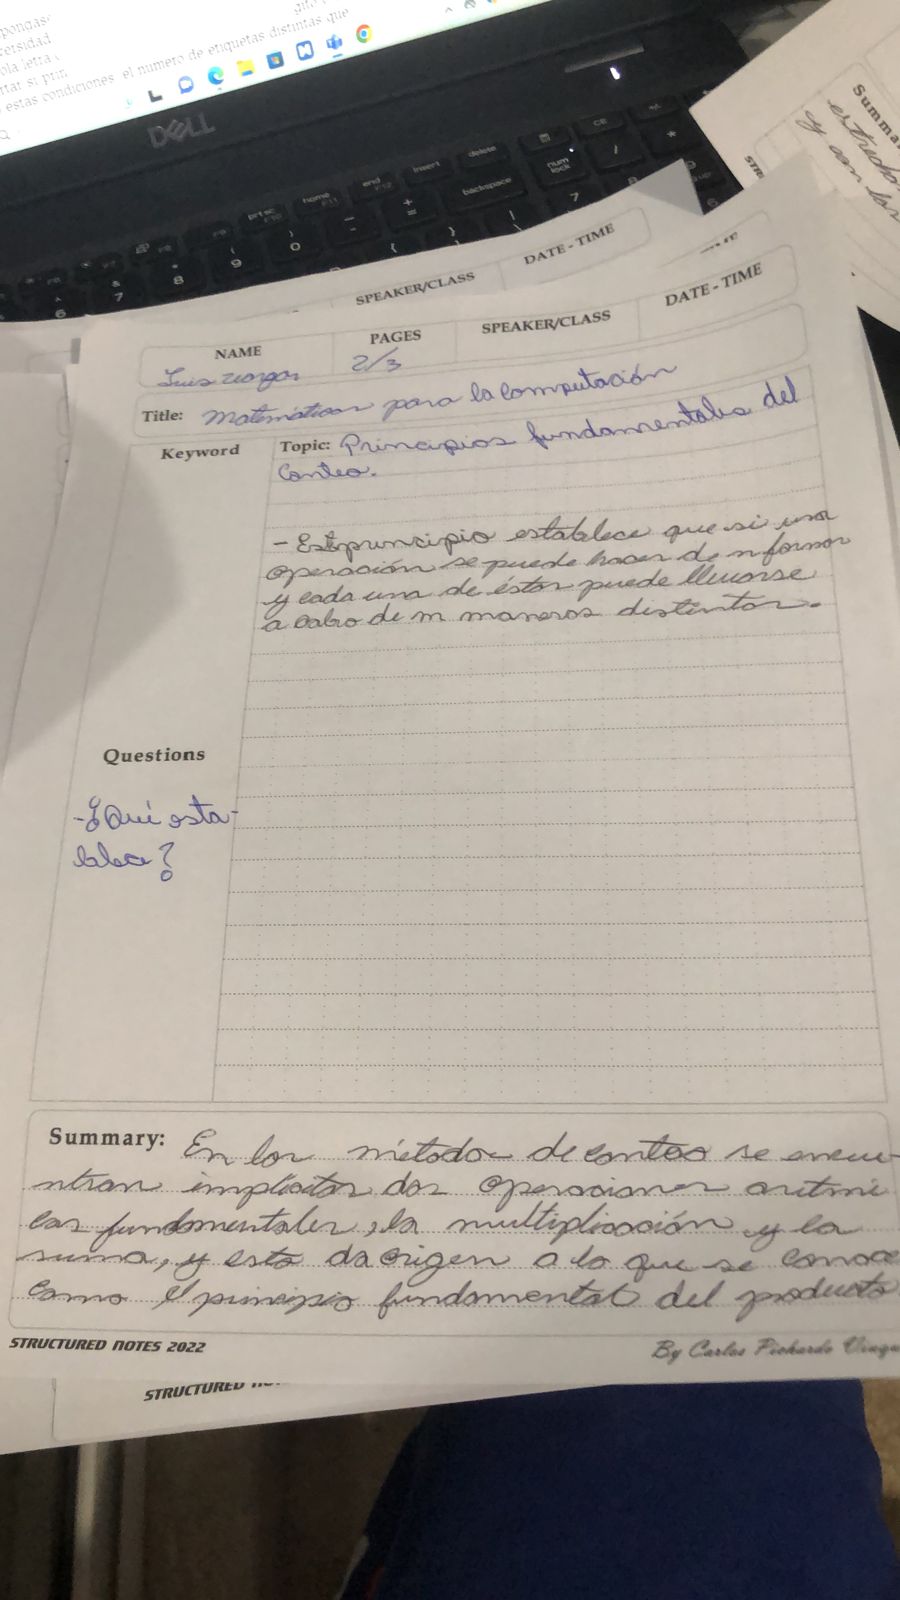 pondas
ersidad
ola letra
rtar si prin
estas condiciones el numero de etiquetas distintas que
DELL
insert
delete
home
end
prtsc
backspace
num lock
CE
SPEAKER/CLASS
DATE - TIME
Summa
y con las
NAME
PAGES
SPEAKER/CLASS
DATE - TIME
Luis
2/3
Title: Matemáticas para la computación
Keyword
Topic: Principios fundamentales del
Conteo.
- Este principio establece que si una
operación se puede hacer de n formas
y cada una de éstas puede llevarse
a cabo de m maneras distintas.
Questions
- ¿Qué esta-
blece?
Summary: En los métodos de conteo se encue-
ntran implícitas dos operaciones aritmé
cas fundamentales, la multiplicación y la
suma, y esto da origen a lo que se conoce
como el principio fundamental del producto
STRUCTURED NOTES 2022
By Carlos Pichardo
STRUCTURED NO